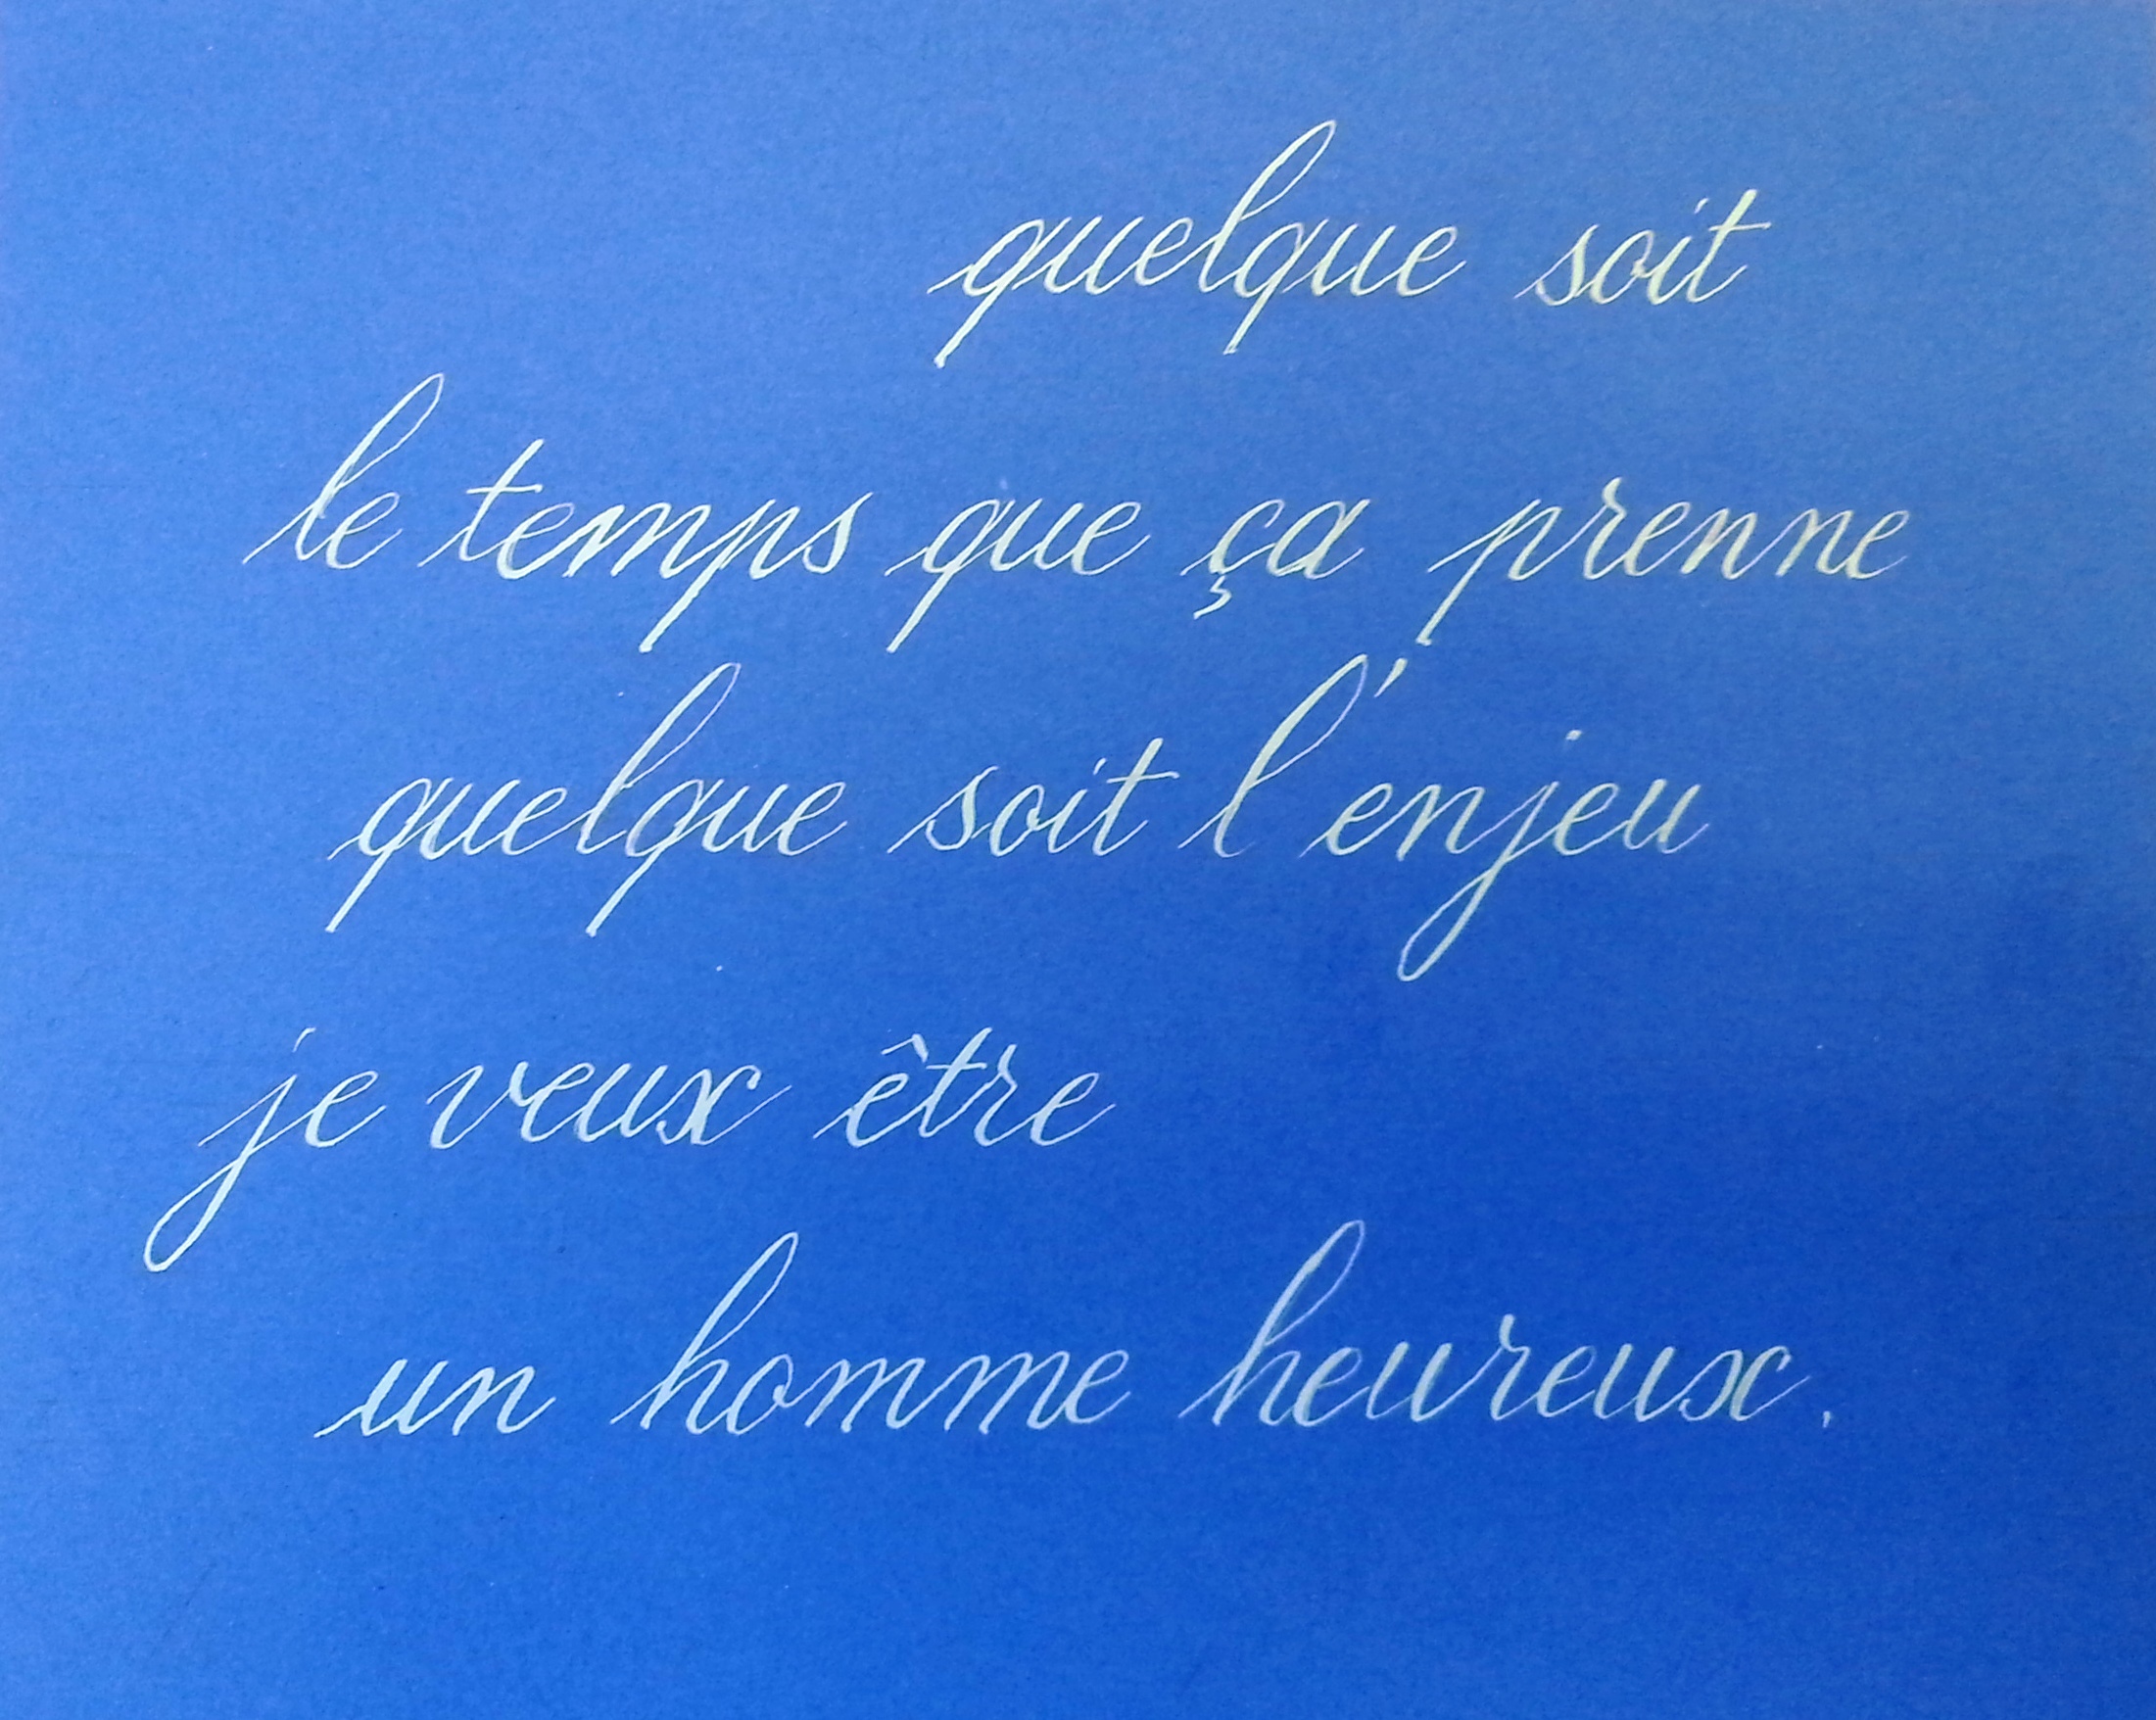 quelque soit
le temps que ça prenne
quelque soit l'enjeu
je veux être
un homme heureux.